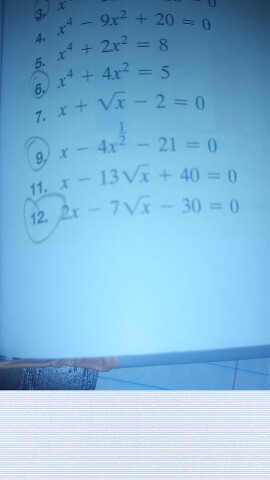 3. x
4. x⁴ − 9x² + 20 = 0
5. x⁴ + 2x² = 8
6. x⁴ + 4x² = 5
7. x + √x − 2 = 0
9. x − 4x^(1/2) − 21 = 0
11. x − 13√x + 40 = 0
12. 2x − 7√x − 30 = 0